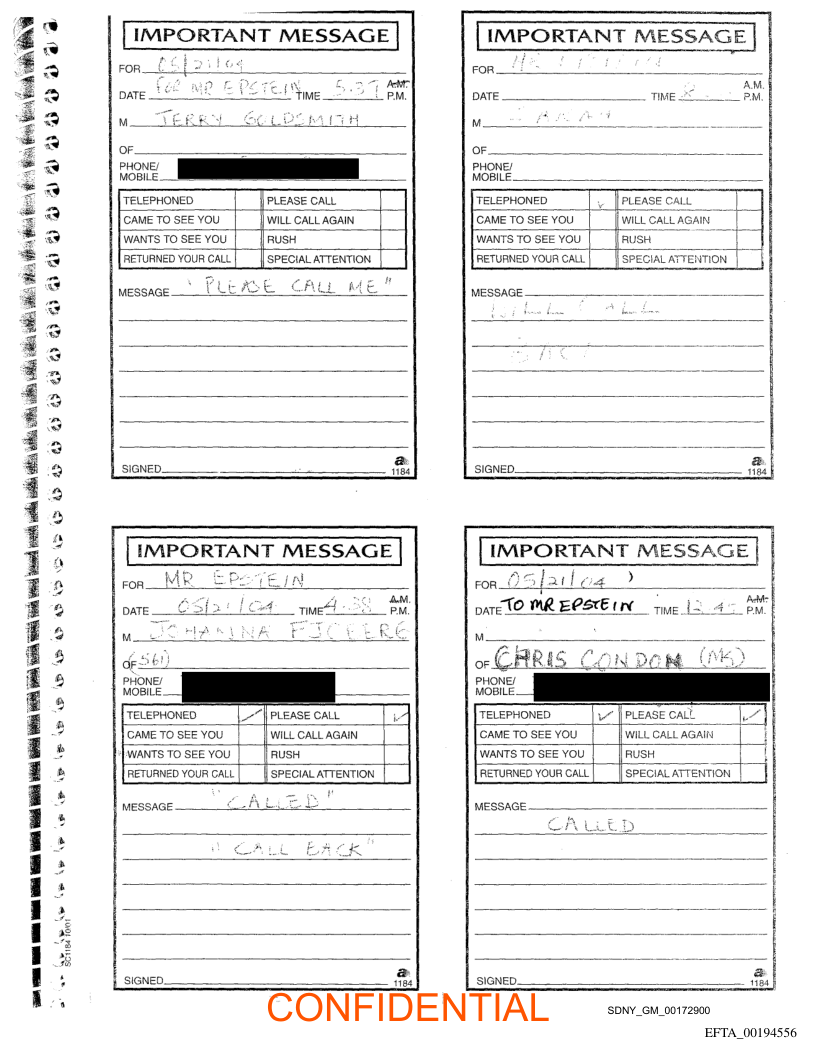 IMPORTANT MESSAGE
FOR 05/21/04
DATE FOR MR EPSTEIN TIME 5.37 A.M. P.M.
M TERRY GOLDSMITH
OF
PHONE/
MOBILE
TELEPHONED PLEASE CALL
CAME TO SEE YOU WILL CALL AGAIN
WANTS TO SEE YOU RUSH
RETURNED YOUR CALL SPECIAL ATTENTION
MESSAGE "PLEASE CALL ME"
SIGNED
a
1184
IMPORTANT MESSAGE
FOR MR EPSTEIN
DATE TIME 8 A.M. P.M.
M SARAH
OF
PHONE/
MOBILE
TELEPHONED ✓ PLEASE CALL
CAME TO SEE YOU WILL CALL AGAIN
WANTS TO SEE YOU RUSH
RETURNED YOUR CALL SPECIAL ATTENTION
MESSAGE
WILL CALL
BACK
SIGNED
a
1184
IMPORTANT MESSAGE
FOR MR EPSTEIN
DATE 05/21/04 TIME 4.38 A.M. P.M.
M JOHANNA
OF (561)
PHONE/
MOBILE
TELEPHONED ✓ PLEASE CALL ✓
CAME TO SEE YOU WILL CALL AGAIN
WANTS TO SEE YOU RUSH
RETURNED YOUR CALL SPECIAL ATTENTION
MESSAGE "CALLED"
"CALL BACK"
SIGNED
a
1184
IMPORTANT MESSAGE
FOR 05/21/04
DATE TO MR EPSTEIN TIME 12.45 A.M. P.M.
M
OF CHRIS CONDON (MS)
PHONE/
MOBILE
TELEPHONED ✓ PLEASE CALL ✓
CAME TO SEE YOU WILL CALL AGAIN
WANTS TO SEE YOU RUSH
RETURNED YOUR CALL SPECIAL ATTENTION
MESSAGE
CALLED
SIGNED
a
1184
SC1184 10/01
CONFIDENTIAL
SDNY_GM_00172900
EFTA_00194556